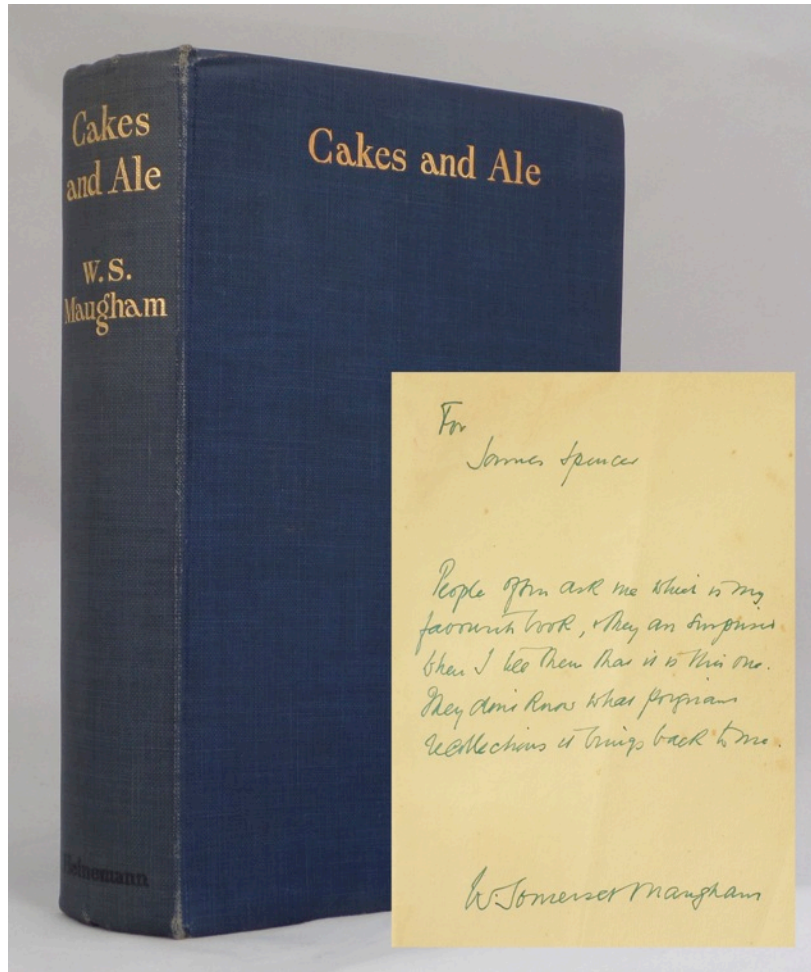 Cakes
and Ale
W.S.
Maugham
Heinemann
Cakes and Ale
For
James Spencer
People often ask me which is my
favourite book, & they are surprised
when I tell them that it is this one.
They don't know what poignant
recollections it brings back to me.
W. Somerset Maugham